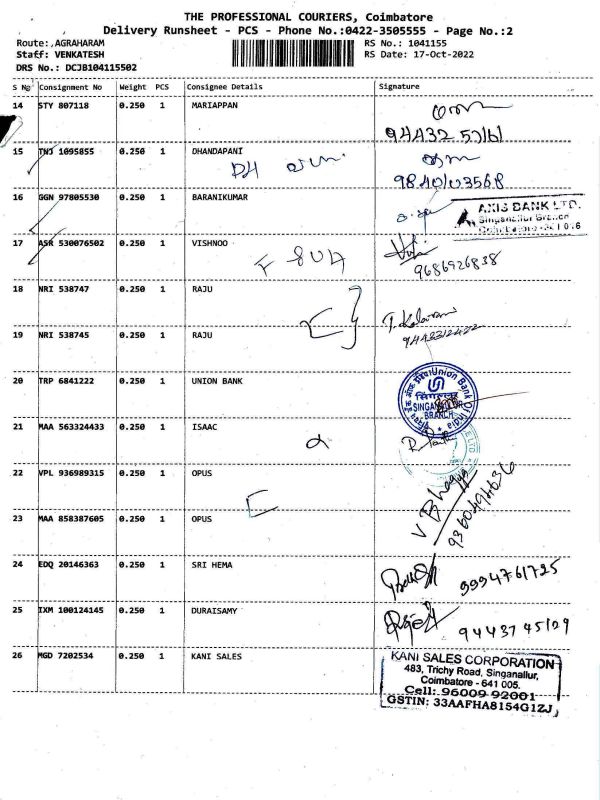 THE PROFESSIONAL COURIERS, Coimbatore
Delivery Runsheet - PCS - Phone No.:0422-3505555 - Page No.:2
Route:,AGRAHARAM RS No.: 1041155
Staff: VENKATESH RS Date: 17-Oct-2022
DRS No.: DCJB104115502
S No Consignment No Weight PCS Consignee Details Signature
14 STY 807118 0.250 1 MARIAPPAN
15 TNJ 1095855 0.250 1 DHANDAPANI
16 GGN 97805530 0.250 1 BARANIKUMAR
AXIS BANK LTD.
Singanallur Branch
17 ASR 530076502 0.250 1 VISHNOO
9686926838
18 NRI 538747 0.250 1 RAJU
19 NRI 538745 0.250 1 RAJU
20 TRP 6841222 0.250 1 UNION BANK
Union Bank Of India
SINGANALLUR
BRANCH
21 MAA 563324433 0.250 1 ISAAC
22 VPL 936989315 0.250 1 OPUS
23 MAA 858387605 0.250 1 OPUS
24 EDQ 20146363 0.250 1 SRI HEMA
9994761725
25 IXM 100124145 0.250 1 DURAISAMY
9443745109
26 MGD 7202534 0.250 1 KANI SALES
KANI SALES CORPORATION
483, Trichy Road, Singanallur,
Coimbatore - 641 005.
Cell: 96009 92001
GSTIN: 33AAFHA8154G1ZJ